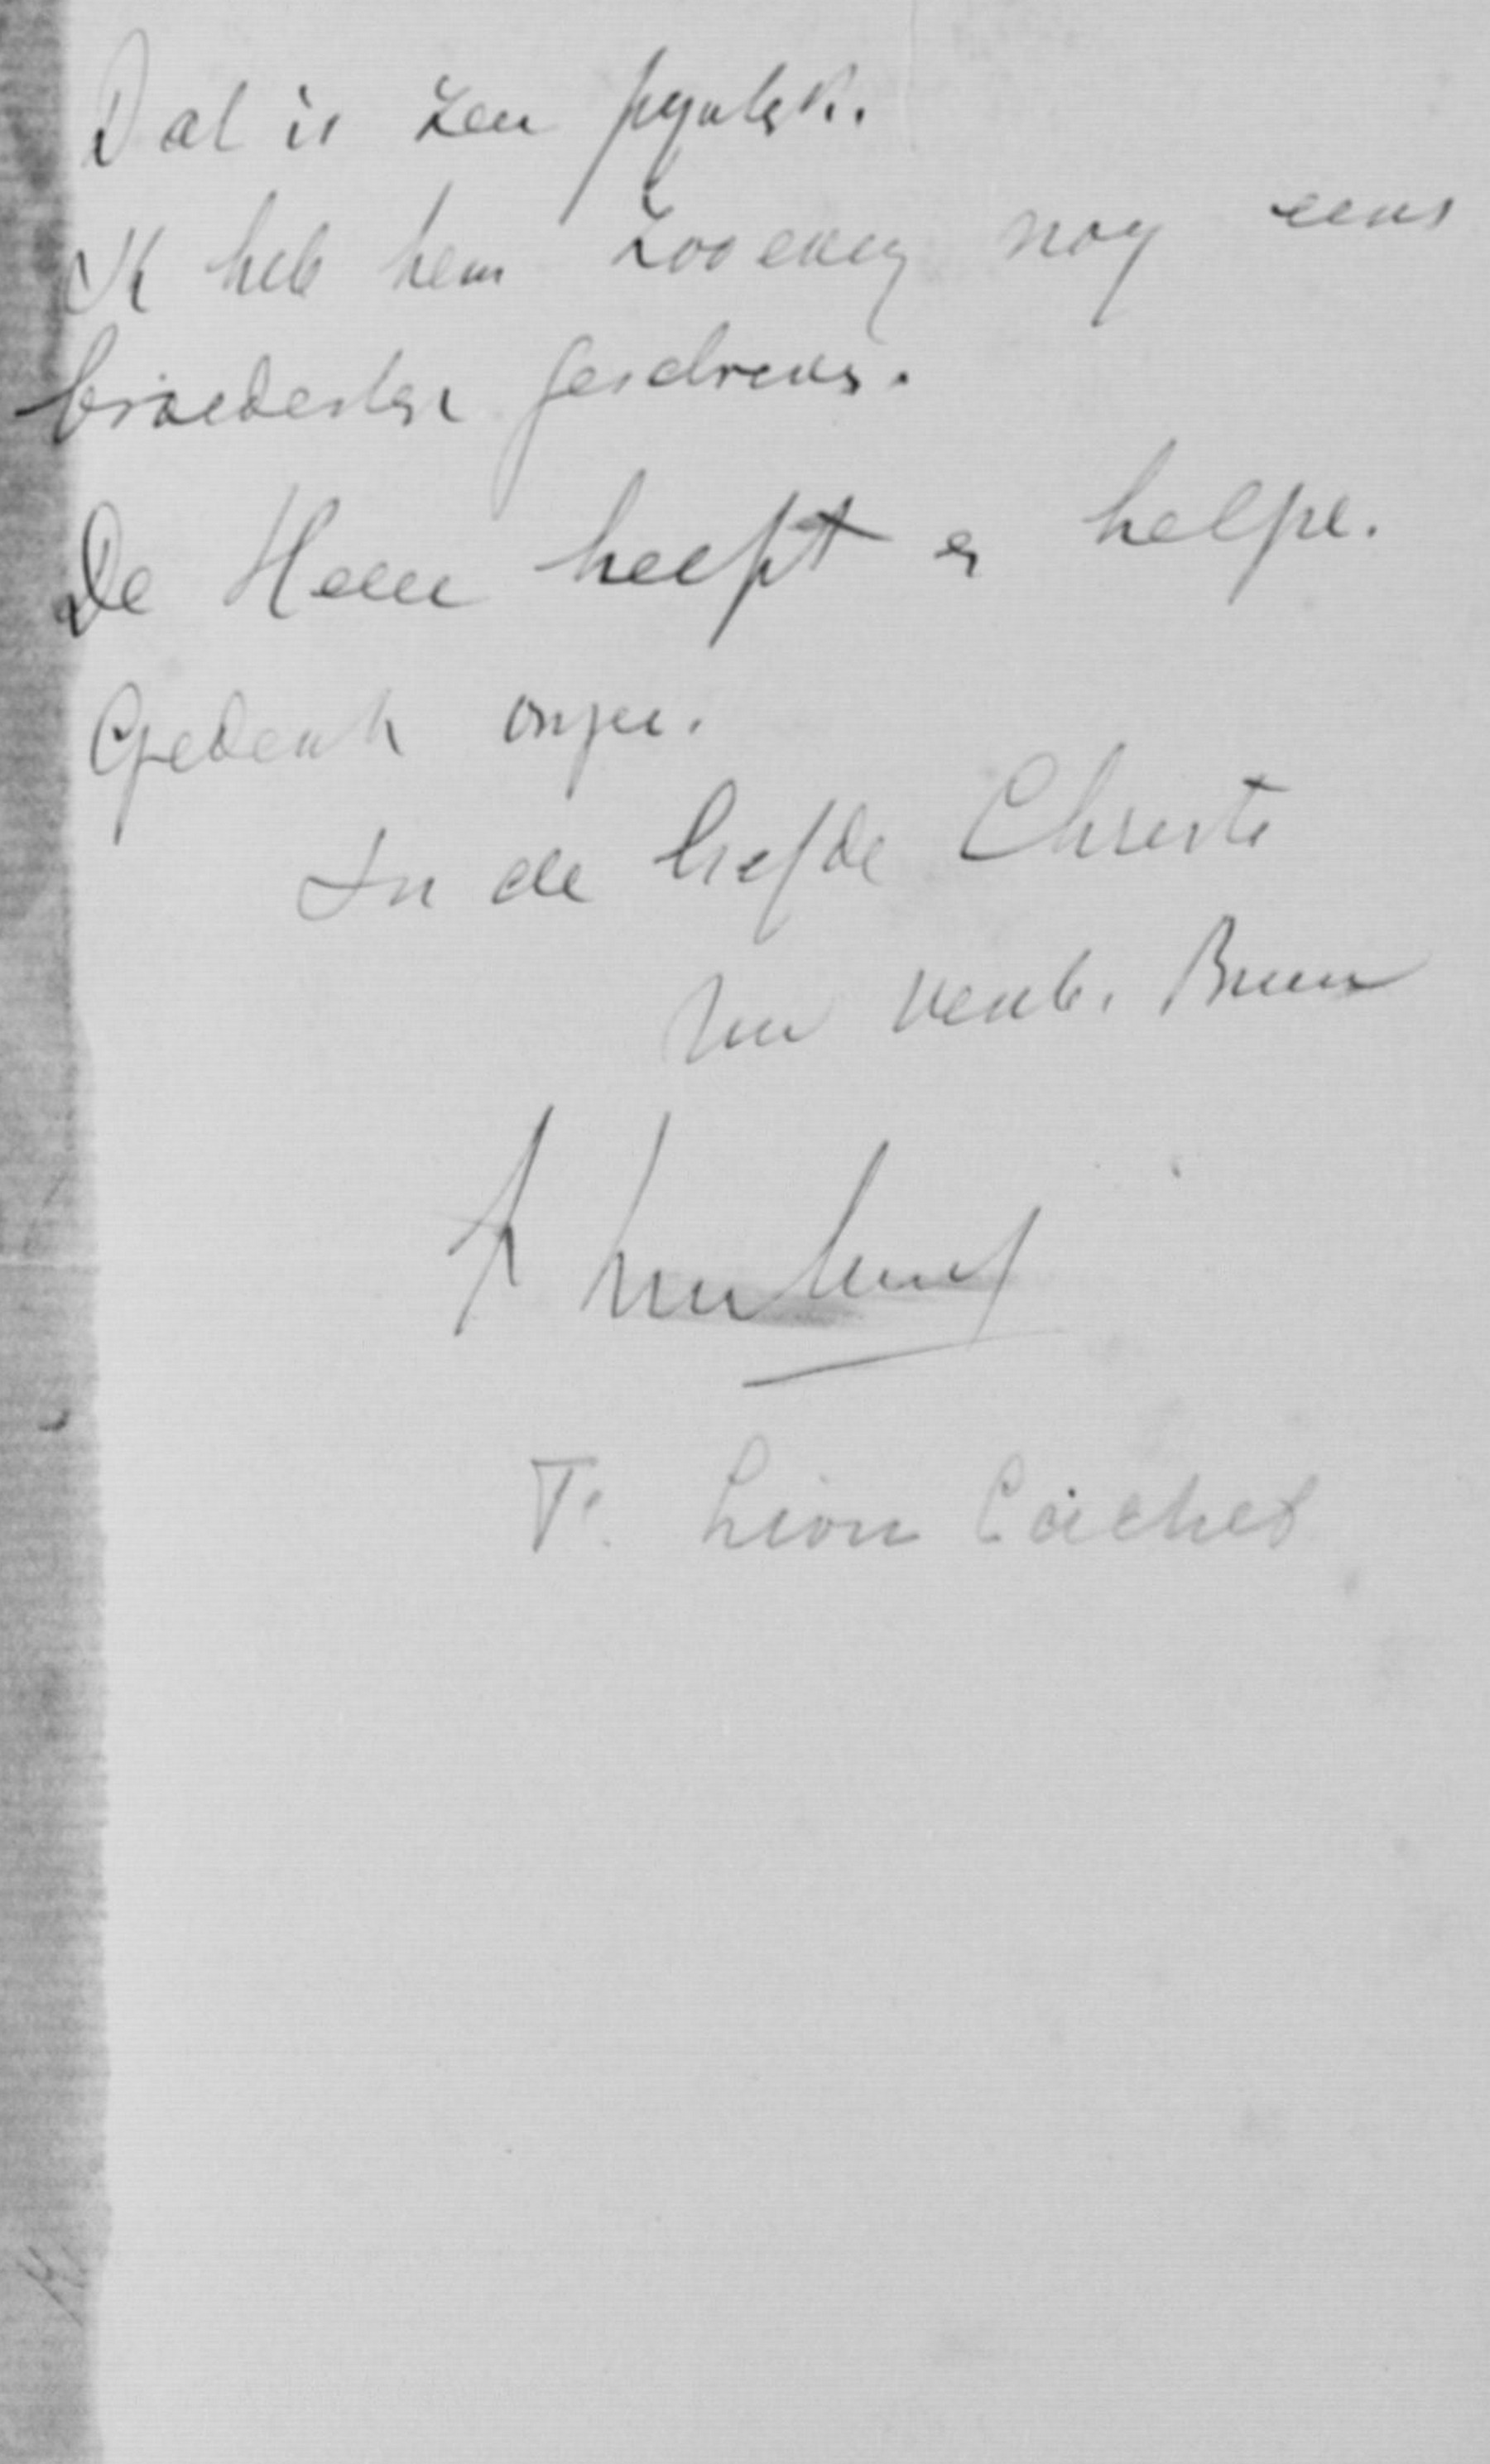 Dat is zeer pynlyk.
Ik heb hem zooeven nog eens
broederlyk geschreven.
De Heer heeft en helpe.
Gedenk onzer.
In de liefde Christi
Uw verb. Broeder
F. Lion Cachet